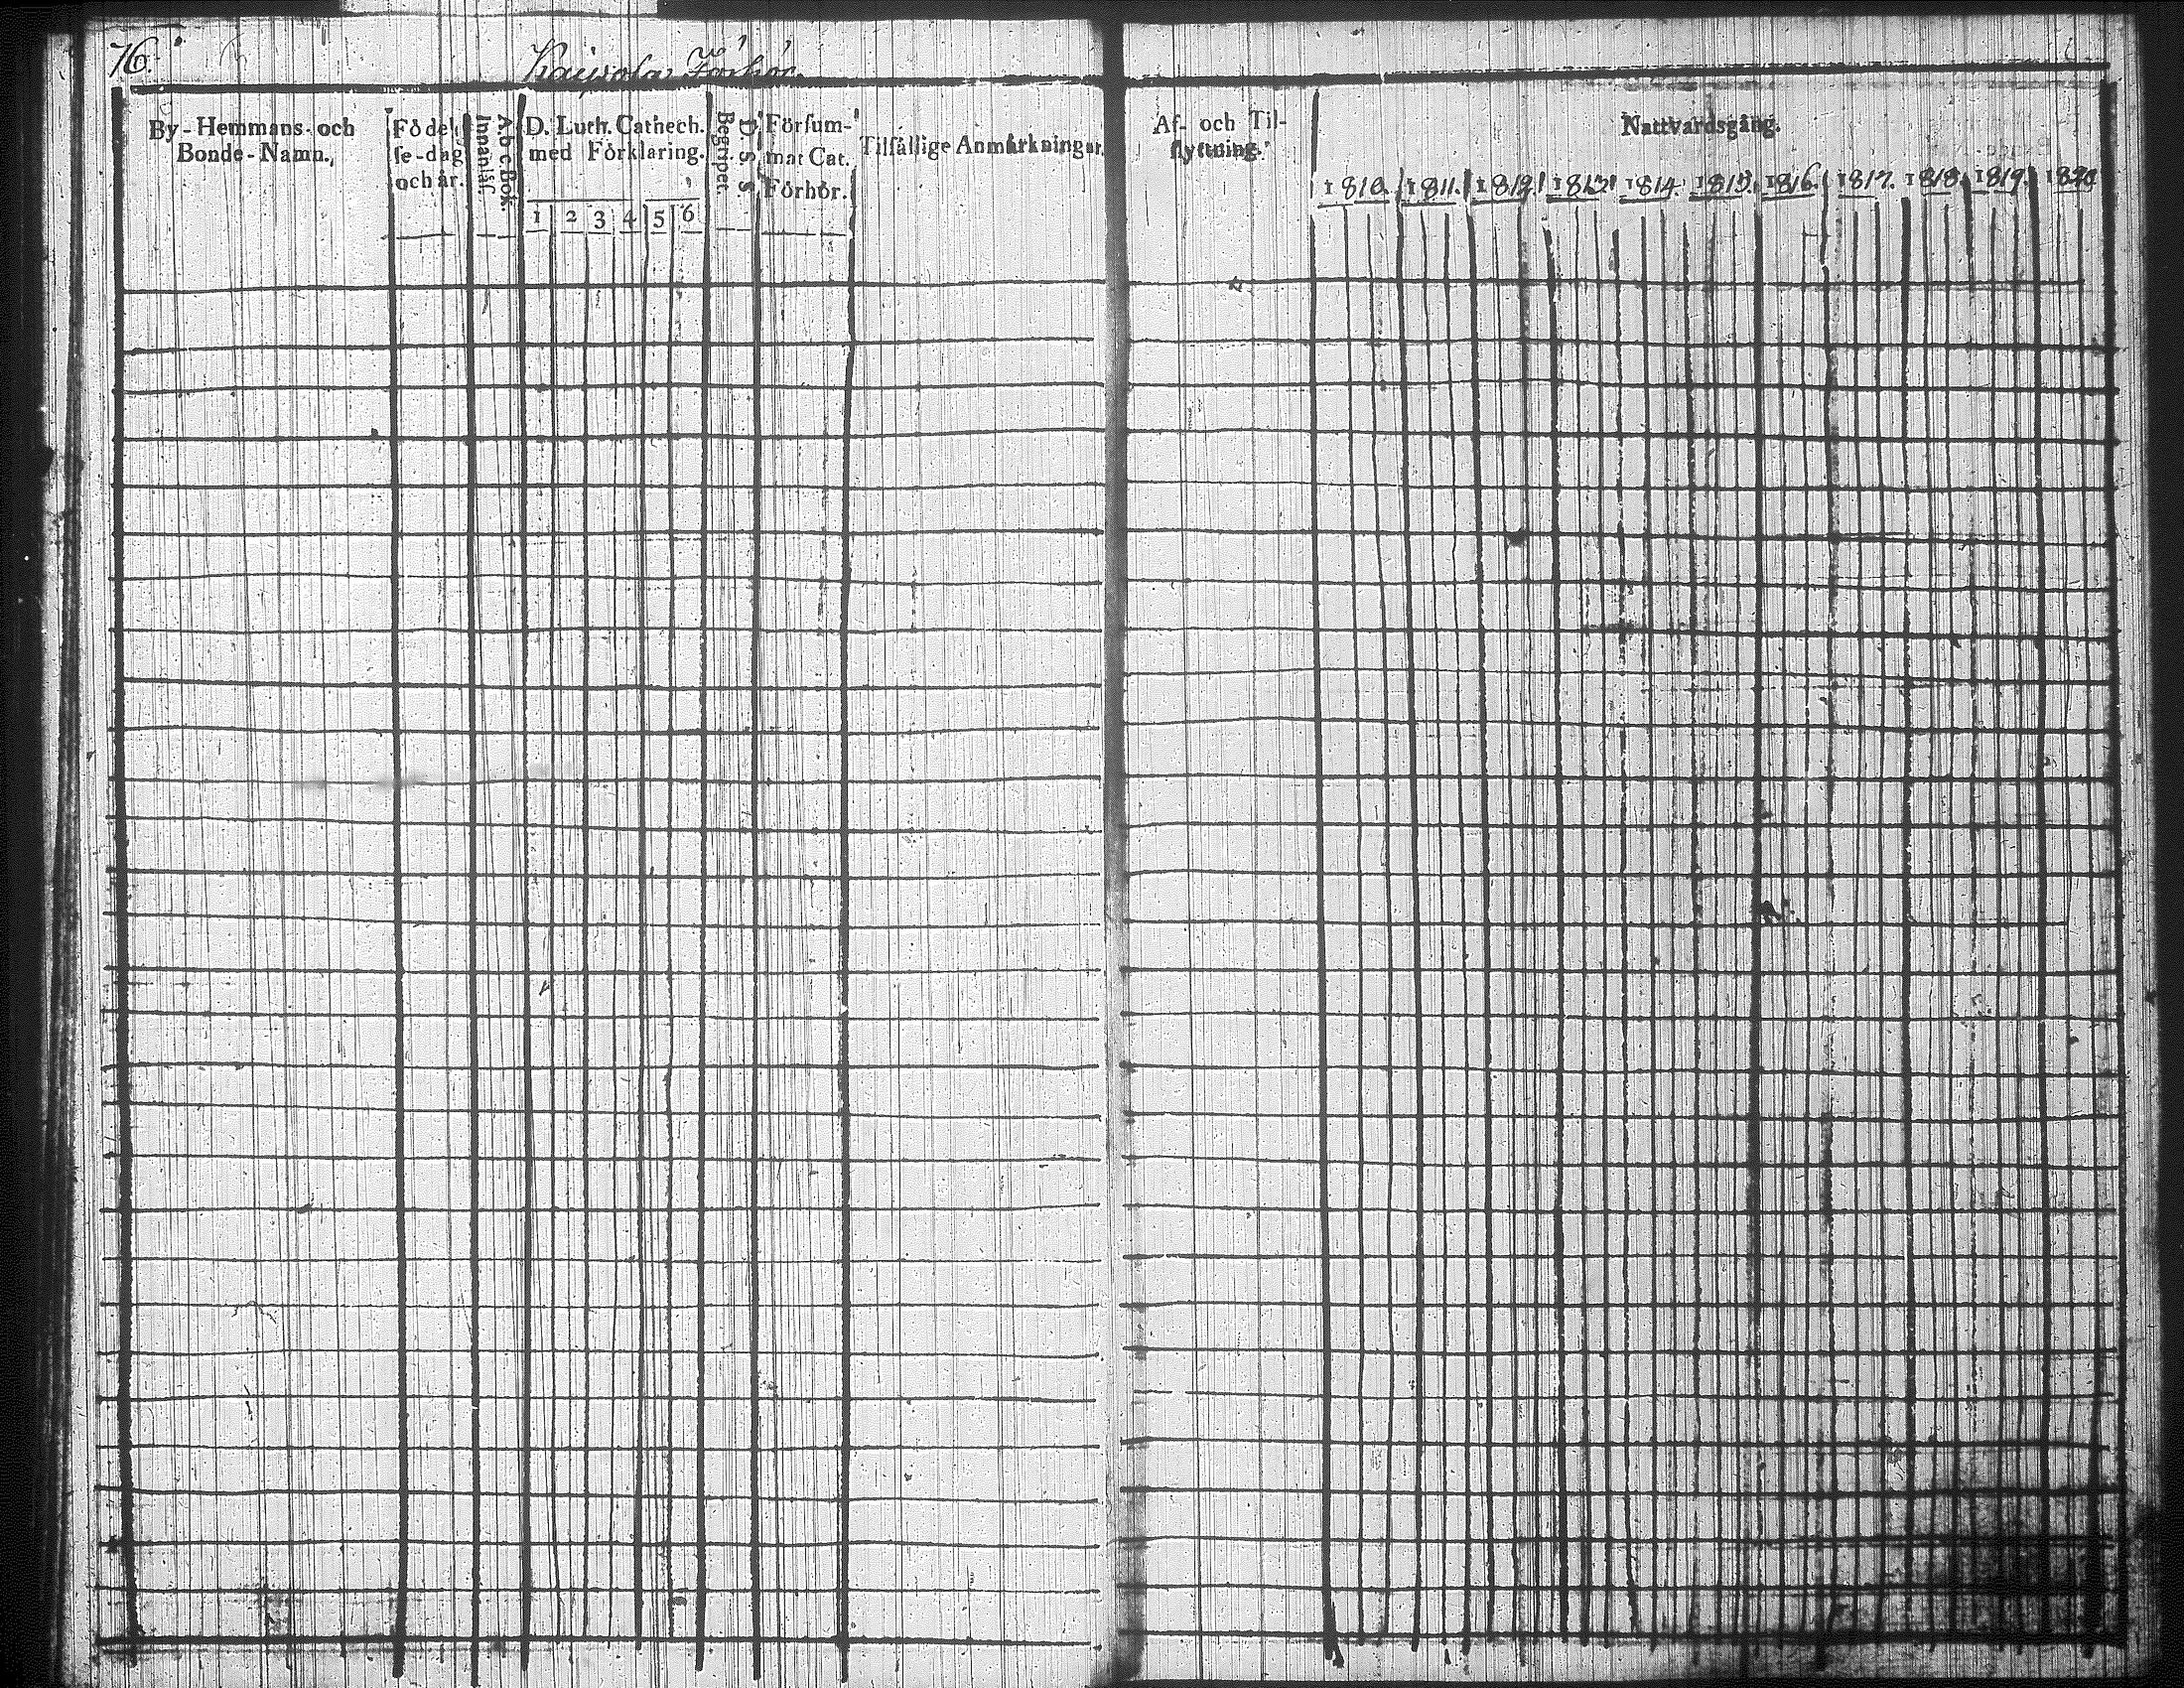 76.
Kaipola Förhör.
By-Hemmans- och
Bonde-Namn.
Födel-
se-dag
och år.
Innanläs.
A b c Bok.
D. Luth. Cathech.
med Förklaring.
1 2 3 4 5 6
Begripet.
D. S. S.
Försum-
mat Cat.
Förhör.
Tilfällige Anmärkningar.
Af- och Til-
flyttning.
Nattvardsgång.
1810. 1811. 1812. 1813. 1814. 1815. 1816. 1817. 1818. 1819. 1820